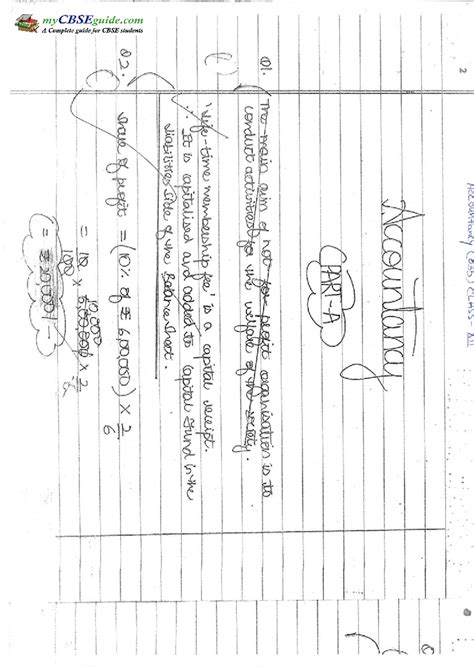 myCBSEguide.com
A Complete guide for CBSE students
2
Accountancy (055) CLASS - XII
Accountancy
PART-A
Q1.
The main aim of not for profit organisation is to
conduct activities for the welfare of the society.
'Life-time membership fee' is a capital receipt.
∴ It is capitalised and added to capital fund in the
liabilities side of the Balance Sheet.
Q2.
Share of profit = (10% of ₹ 6,00,000) × 2/6
= 10/100 × 6,00,000 × 2/6
10,000
= ₹ 20,000/-